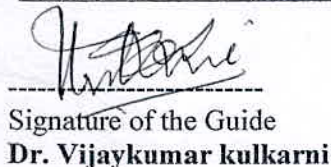 Signature of the Guide
Dr. Vijaykumar kulkarni